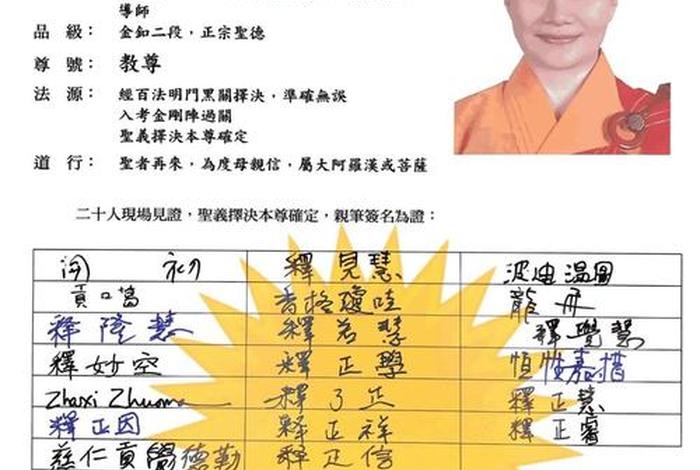 導師
品級：金釦二段，正宗聖德
尊號：教尊
法源：經百法明門黑關擇決，準確無誤
入考金剛陣過關
聖義擇決本尊確定
道行：聖者再來，為度母親信，屬大阿羅漢或菩薩
二十人現場見證，聖義擇決本尊確定，親筆簽名為證：
初 釋見慧 波迪溫圖
貢口葛 香格瓊哇 龍舟
釋隆慧 釋若慧 釋覺慧
釋妙空 釋正學 恒性嘉措
Zhaxi Zhuoma 釋了正 釋正慧
釋正因 釋正祥 釋正睿
慈仁貢覺德勤 釋正信